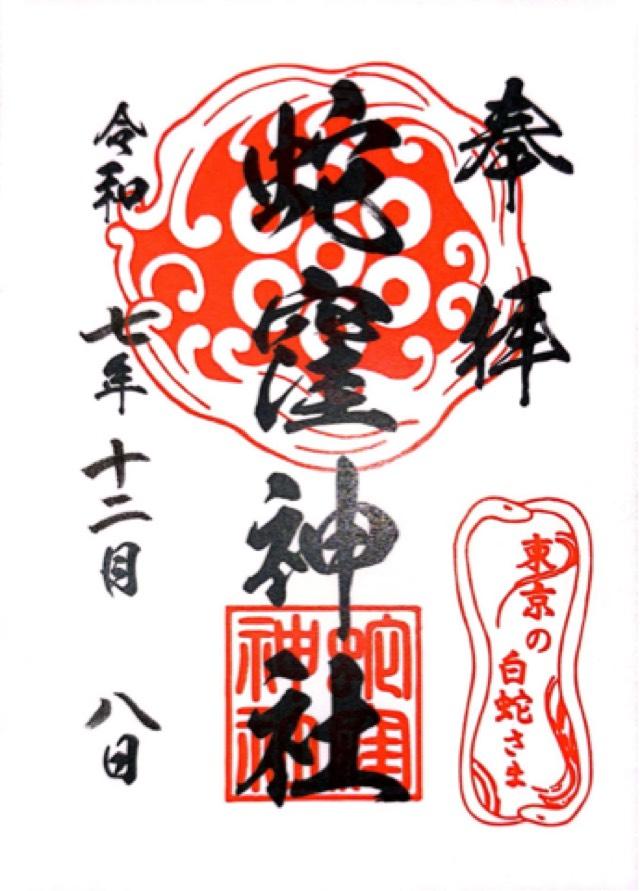 奉拝
蛇窪神社
蛇窪
神社
令和七年十二月八日
東京の
白蛇さま